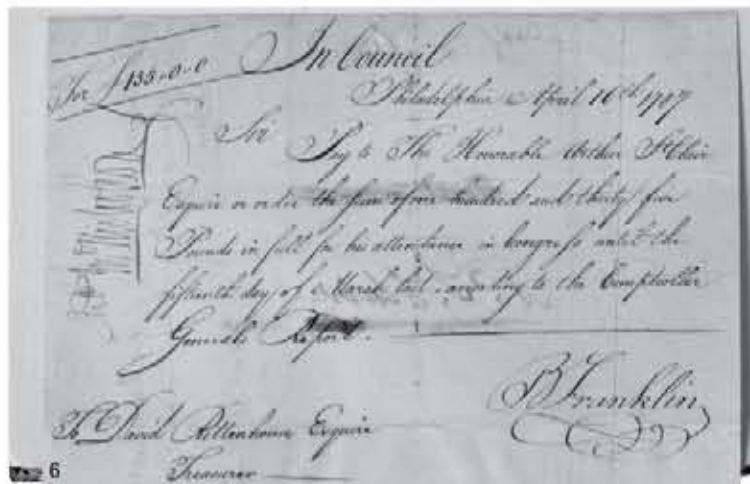 For £135-0-0
In Council
Philadelphia April 10th 1787
Sir
Pay to The Honorable Arthur St Clair
Esquire or order the sum of one hundred and thirty five
Pounds in full for his attendance in Congress until the
fifteenth day of March last according to the Comptroller
Generals Report.
B Franklin
To David Rittenhouse Esquire
Treasurer
6